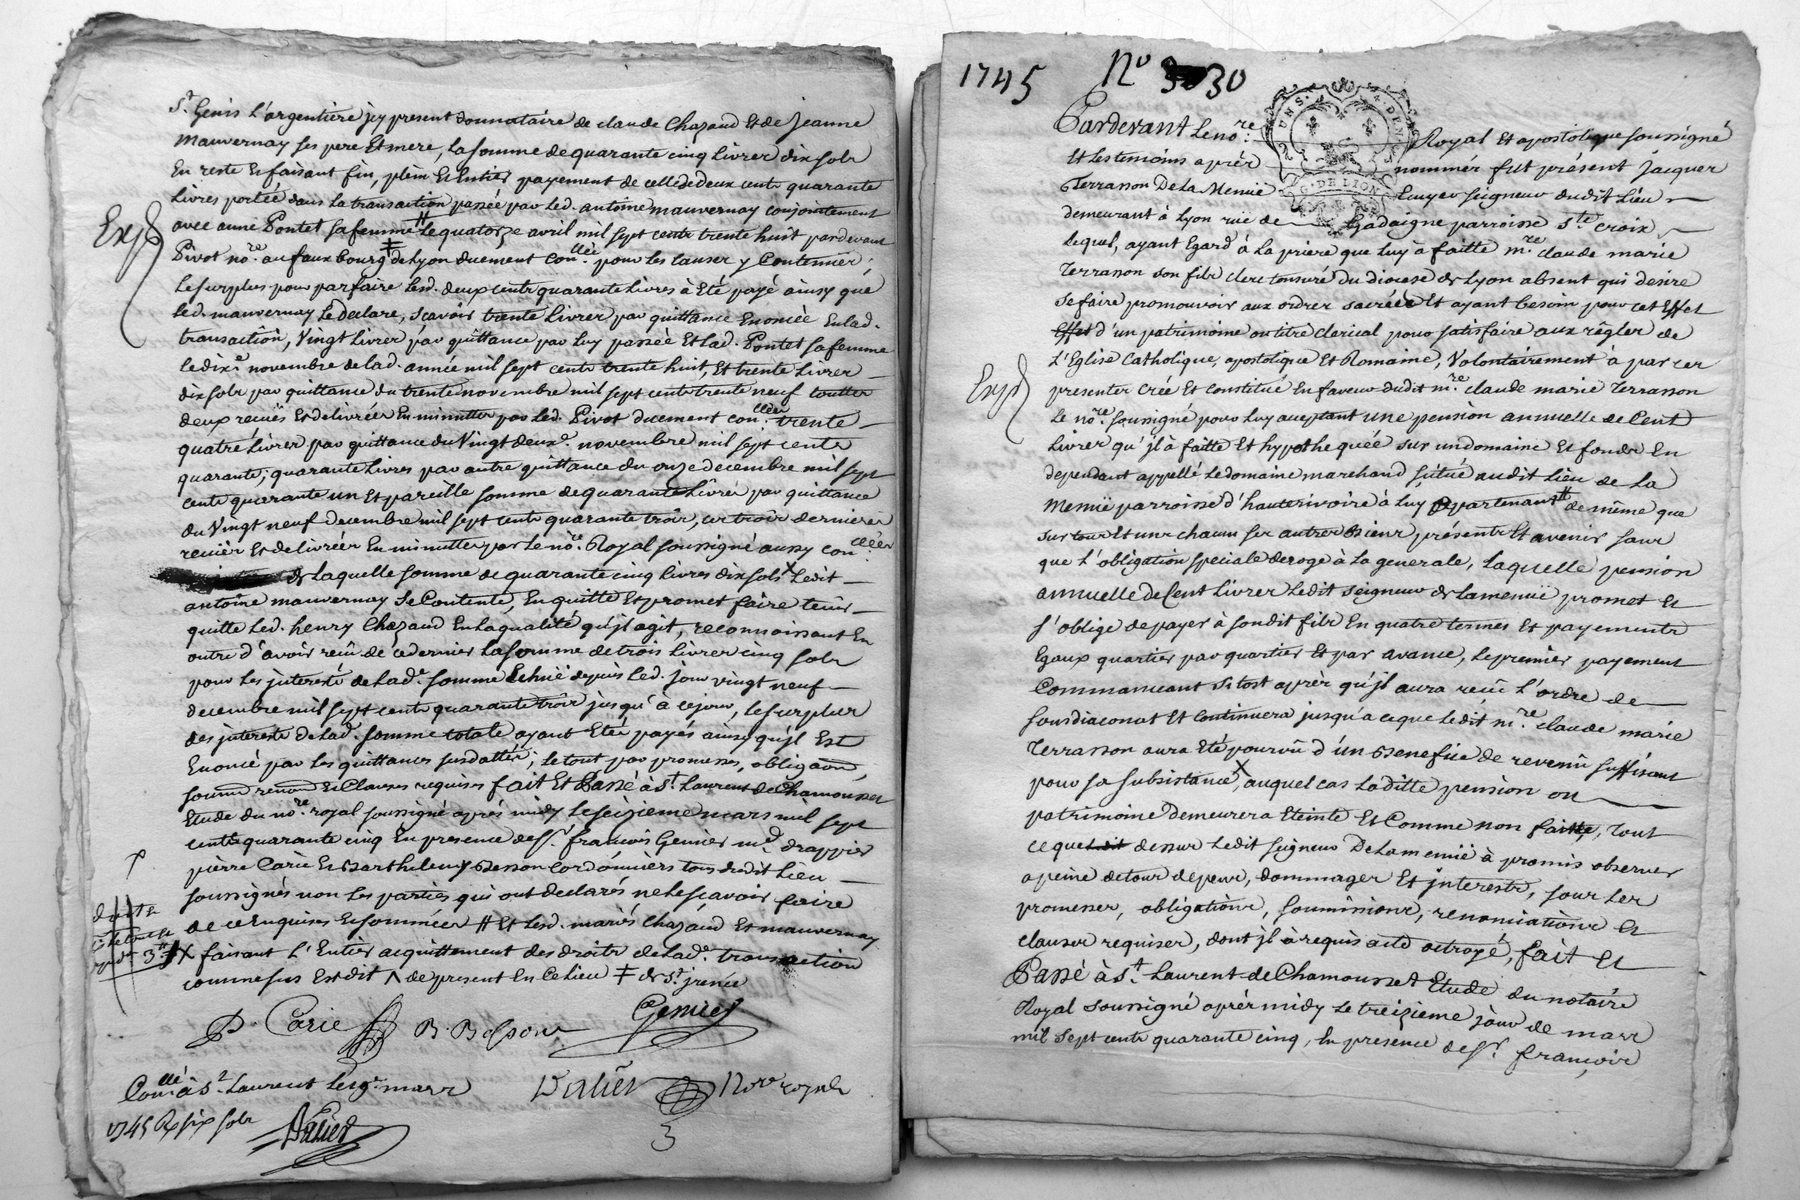 St Genis L'argentiere jcy present donnataire de claude Chazaud Et de Jeanne
Mauvernay ses pere Et mere, la somme de quarante cinq livres dix sols
En reste Et faisant fin, plein Et Entier payement de celle de deux cents quarante
Livres portée dans la transaction passée par led. antoine mauvernay conjointement
avec anne Pontet sa femme # Le quatorze avril mil sept cents trente huit pardevant
Pivot nore. au faux bourg ‡ de Lyon duement conllée. pour les causes y Contenues;
Le surplus pour parfaire lesd. deux cents quarante Livres à Eté payé ainsy que
Led. mauvernay Le declare, scavoir trente Livres par quittance Enoncée En lad.
transaction, Vingt Livres par quittance par luy passée Et lad. Pontet sa femme
le dixe novembre de lad. année mil sept cents trente huit, Et trente Livres
dix sols par quittance du trente novembre mil sept cents trente neuf touttes
deux reçuës Et delivrées En minutte par led. Pivot duement conllées. trente
quatre Livres par quittance du Vingt deuxe. novembre mil sept cents
quarante; quarante Livres par autre quittance du onze decembre mil sept
cents quarante un Et pareille somme de quarante Livres par quittance
du Vingt neuf decembre mil sept cents quarante trois, ces trois dernieres
reçuës Et delivrées En minutte par le nore. Royal soussigné aussy conllées
de laquelle somme de quarante cinq livres dix sols X Ledit
antoine mauvernay se Contente, En quitte Et promet faire tenir
quitte led. henry Chazaud En la qualité qu'jl agit, reconnoissant En
outre d'avoir reçû de ce dernier la somme de trois Livres cinq sols
pour les jnterests de lade. somme Echüe depuis led. jour vingt neuf
decembre mil sept cents quarante trois jusqu'à ce jour, le surplus
des jnterests de lad. somme totale ayant Eté payés ainsy qu'jl Est
Enoncé par les quittances susdattées; le tout par promesses, obligaons,
soumons renons Et Clauses requises fait Et Passé à St. Laurent de Chamousset
Etude du nore. royal soussigné aprés midy Le seizieme mars mil sept
cents quarante cinq En presence de sr. françois Genier md. drappier
pierre Carie Et Barthelemy Besson Cordonniers tous dudit Lieu
soussignés non les parties qui ont declarés ne le scavoir faire
de ce Enquises Et sommées # Et lesd. mariés Chazaud Et mauvernay
X faisant L'Entier acquittement des droits de lade. transaction
comme sus Est dit ^ de present En ce lieu ‡ de St. jrenée
P. Carie B. Besson Genier
Conllé à St. Laurent Le 9e mars
1745 R. six sols
Nore royal
Exp
1745 No 30
UNS. 4. DEN.
G. DE LION
Pardevant Le nore. Royal Et apostolique soussigné
Et les temoins aprés nommés fut présent Jacques
Terrasson De La Menuë Ecuyer seigneur dudit Lieu
demeurant à Lyon ruë de Gadaigne parroisse Ste. croix
Lequel, ayant Egard à La priere que luy à faitte mre. claude marie
Terrasson son fils clerc tonsuré du diocese de Lyon absent qui desire
se faire promouvoir aux ordres sacrées Et ayant besoin pour cet Effet
Effet d'un patrimoine ou titre clerical pour satisfaire aux régles de
L'Eglise Catholique, apostolique Et Romaine, Volontairement à par ces
presentes créé Et constitué En faveur dudit mre. claude marie Terrasson
Le nore. soussigné pour luy acceptant une pension annuelle de Cent
Livres qu'jl à faitte Et hypothequée sur un domaine Et fonds En
dependant appellé Le domaine marchand sçitué audit Lieu de La
Menuë parroisse d'hauterivoire à luy appartenant # de même que
sur tous Et uns chacuns ses autres Biens présents Et avenir sans
que L'obligation speciale deroge à La generale, Laquelle pension
annuelle de Cent Livres Ledit seigneur de Lamenuë promet Et
s'oblige de payer à sondit fils En quatre termes Et payements
Egaux quartier par quartier Et par avance, Le premier payement
Commanceant sitost aprés qu'jl aura reçû L'ordre de
sousdiaconat Et Continuera jusqu'a ce que Ledit mre. claude marie
Terrasson aura Eté pourvû d'ün Benefice de revenû suffisant
pour sa subsistance X, auquel cas Laditte pension ou
patrimoine Demeurera Eteinte Et Comme non faitte, Tout
ce que dessus Ledit seigneur De Lamenuë à promis observer
a peine de tous depens, dommages Et jnterests, sous les
promesses, obligations, soumissions, renonciations Et
clauses requises, dont jl à requis acte octroyé, fait Et
Passé à St. Laurent de Chamousset Etude du notaire
Royal soussigné aprés midy Le treizieme jour de mars
mil sept cents quarante cinq, En presence de sr. françois
Exp